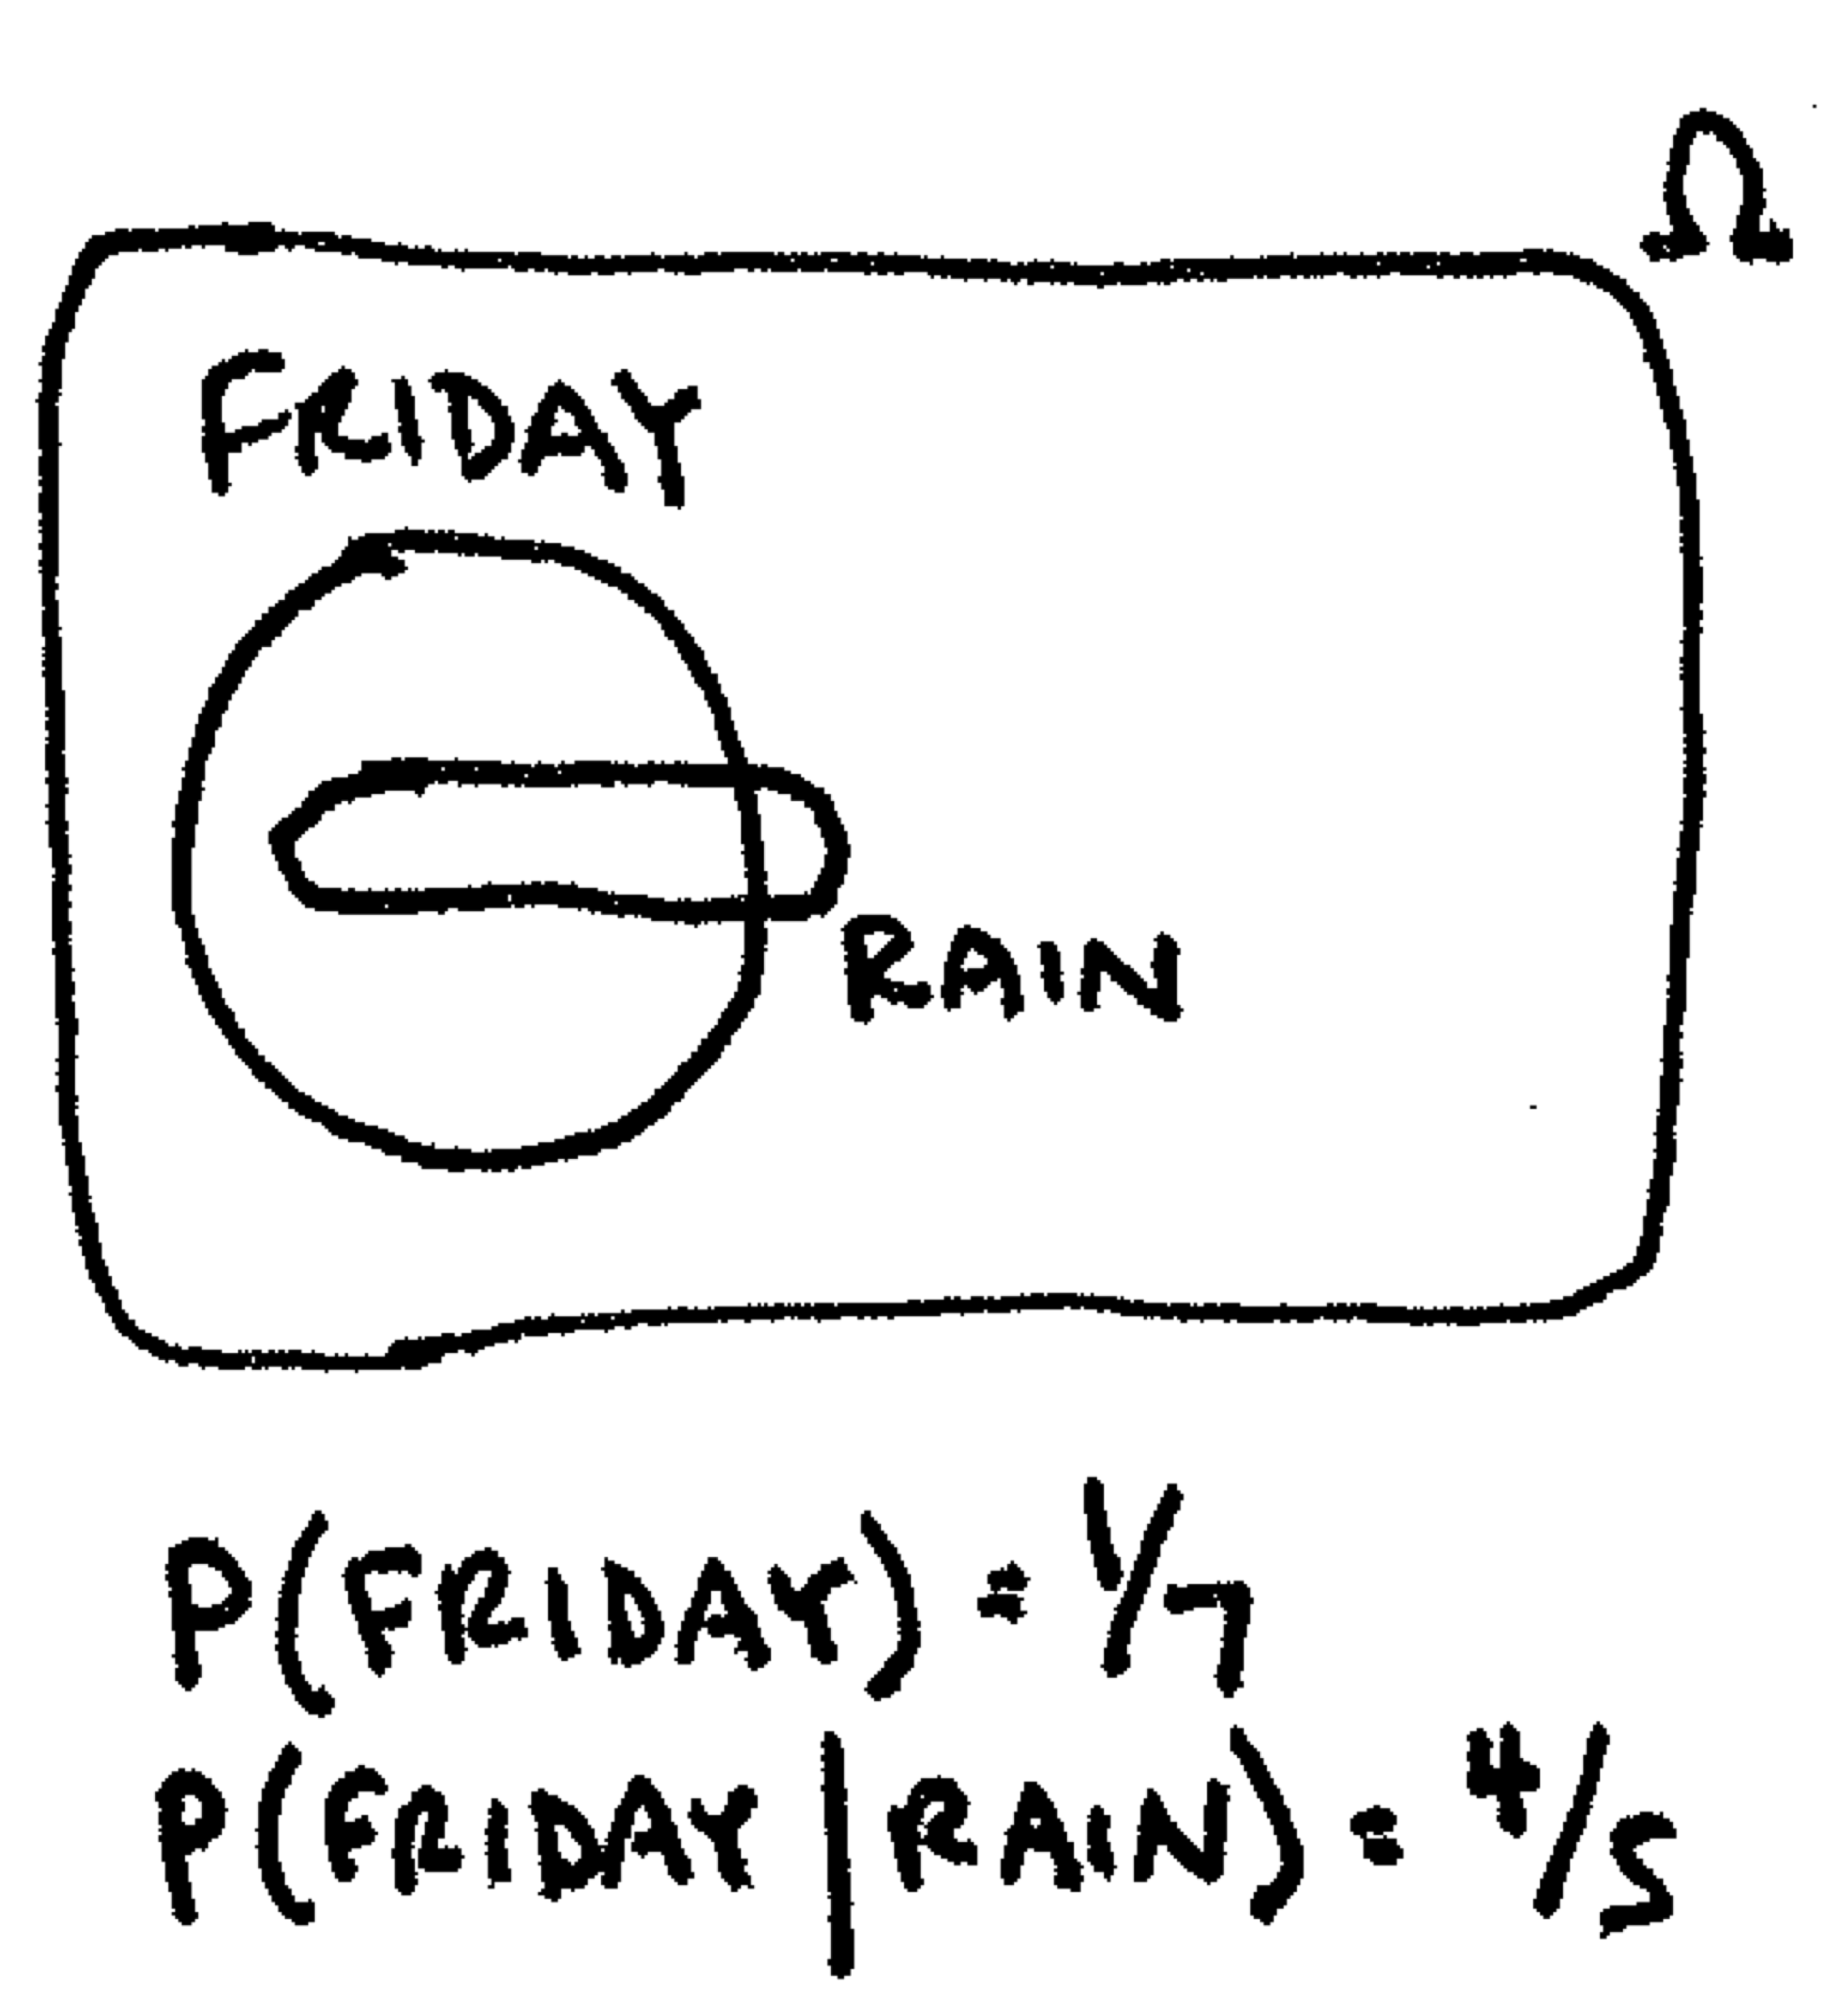 Ω
FRIDAY
RAIN
P(FRIDAY) = 1/7
P(FRIDAY | RAIN) = 4/5